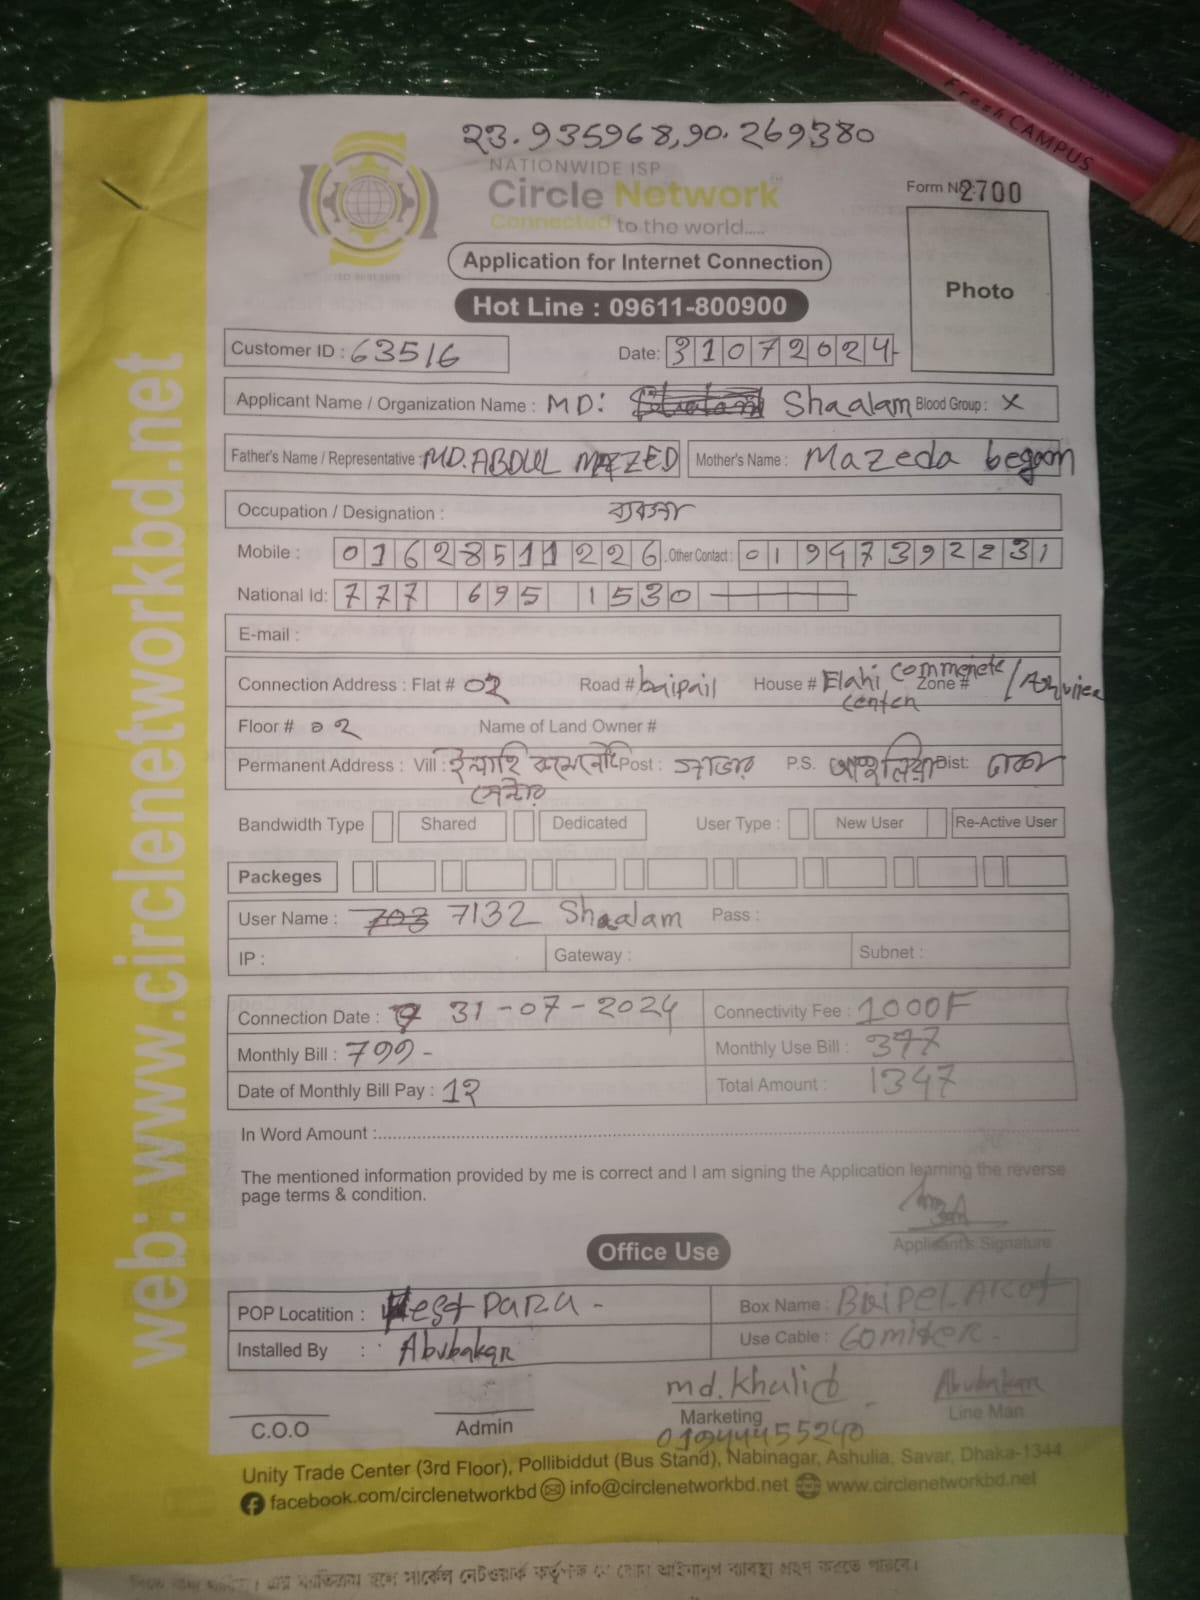 23.935968,90.269380
NATIONWIDE ISP
Circle Network
Connected to the world.....
Form No: 2700
Application for Internet Connection
Hot Line : 09611-800900
Photo
Customer ID : 63516 Date: 31072024
Applicant Name / Organization Name : MD: Shaalam Blood Group : X
Father's Name / Representative : MD. ABDUL MAZED Mother's Name : Mazeda begom
Occupation / Designation : ব্যবসা
Mobile : 01628511226 Other Contact : 01947392231
National Id: 777 695 1530
E-mail :
Connection Address : Flat # 02 Road # baipail House # Elahi Zone #
Floor # 02 Name of Land Owner #
Permanent Address : Vill : Post : সাভার P.S. আশুলিয়া Dist: ঢাকা
সেন্টার
Bandwidth Type Shared Dedicated User Type : New User Re-Active User
Packeges
User Name : 7132 Shaalam Pass :
IP : Gateway : Subnet :
Connection Date : 31-07-2024 Connectivity Fee : 1000
Monthly Bill : 799- Monthly Use Bill :
Date of Monthly Bill Pay : 12 Total Amount : 1347
In Word Amount :
The mentioned information provided by me is correct and I am signing the Application learning the reverse
page terms & condition.
Applicant's Signature
Office Use
POP Locatition : Para - Box Name :
Installed By : Abubakar Use Cable :
md. Khalid Abubakar
C.O.O Admin Marketing Line Man
01944455240
Unity Trade Center (3rd Floor), Pollibiddut (Bus Stand), Nabinagar, Ashulia, Savar, Dhaka-1344
facebook.com/circlenetworkbd info@circlenetworkbd.net www.circlenetworkbd.net
web: www.circlenetworkbd.net
Fresh CAMPUS